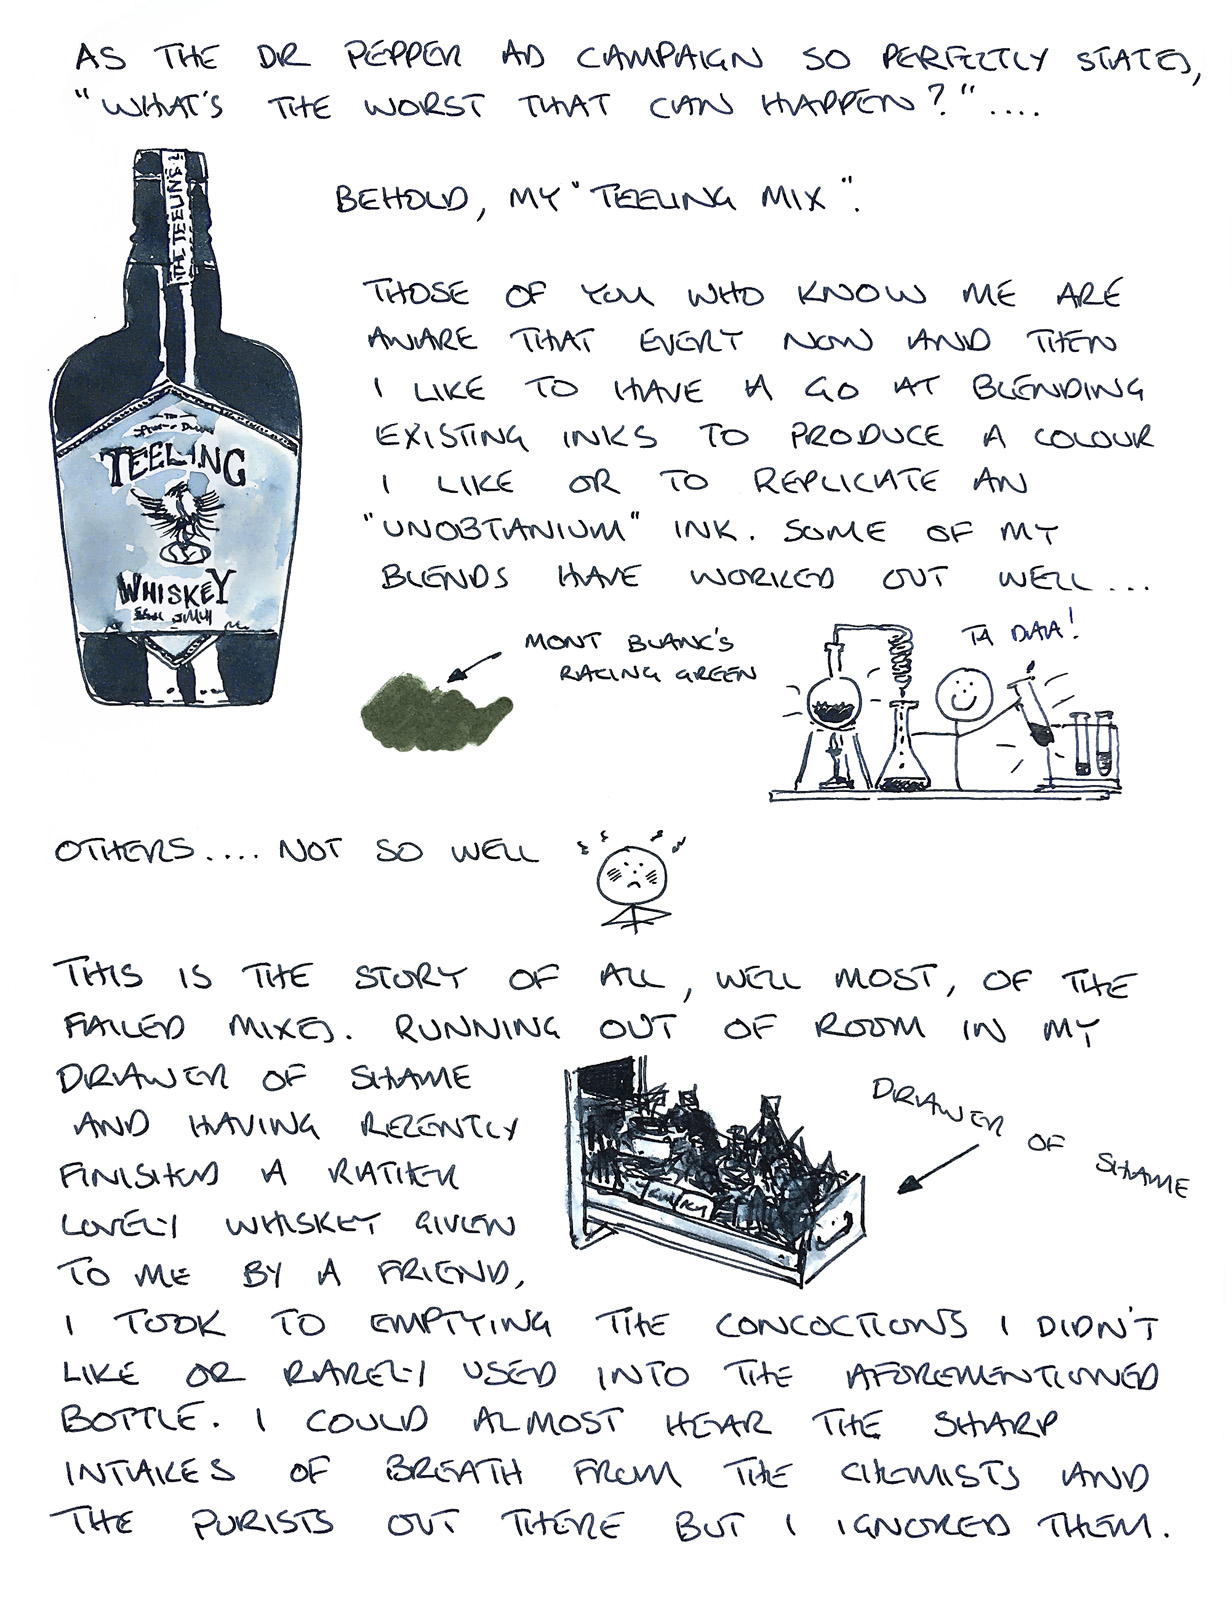 AS THE DR PEPPER AD CAMPAIGN SO PERFECTLY STATES,
"WHAT'S THE WORST THAT CAN HAPPEN?"....
BEHOLD, MY "TEELING MIX".
THE TEELING
TEELING
WHISKEY
THOSE OF YOU WHO KNOW ME ARE
AWARE THAT EVERY NOW AND THEN
I LIKE TO HAVE A GO AT BLENDING
EXISTING INKS TO PRODUCE A COLOUR
I LIKE OR TO REPLICATE AN
"UNOBTANIUM" INK. SOME OF MY
BLENDS HAVE WORKED OUT WELL...
MONT BLANC'S
RACING GREEN
TA DAA!
OTHERS.... NOT SO WELL
THIS IS THE STORY OF ALL, WELL MOST, OF THE
FAILED MIXES. RUNNING OUT OF ROOM IN MY
DRAWER OF SHAME
AND HAVING RECENTLY
FINISHED A RATHER
LOVELY WHISKEY GIVEN
TO ME BY A FRIEND,
DRAWER OF SHAME
I TOOK TO EMPTYING THE CONCOCTIONS I DIDN'T
LIKE OR RARELY USED INTO THE AFOREMENTIONED
BOTTLE. I COULD ALMOST HEAR THE SHARP
INTAKES OF BREATH FROM THE CHEMISTS AND
THE PURISTS OUT THERE BUT I IGNORED THEM.